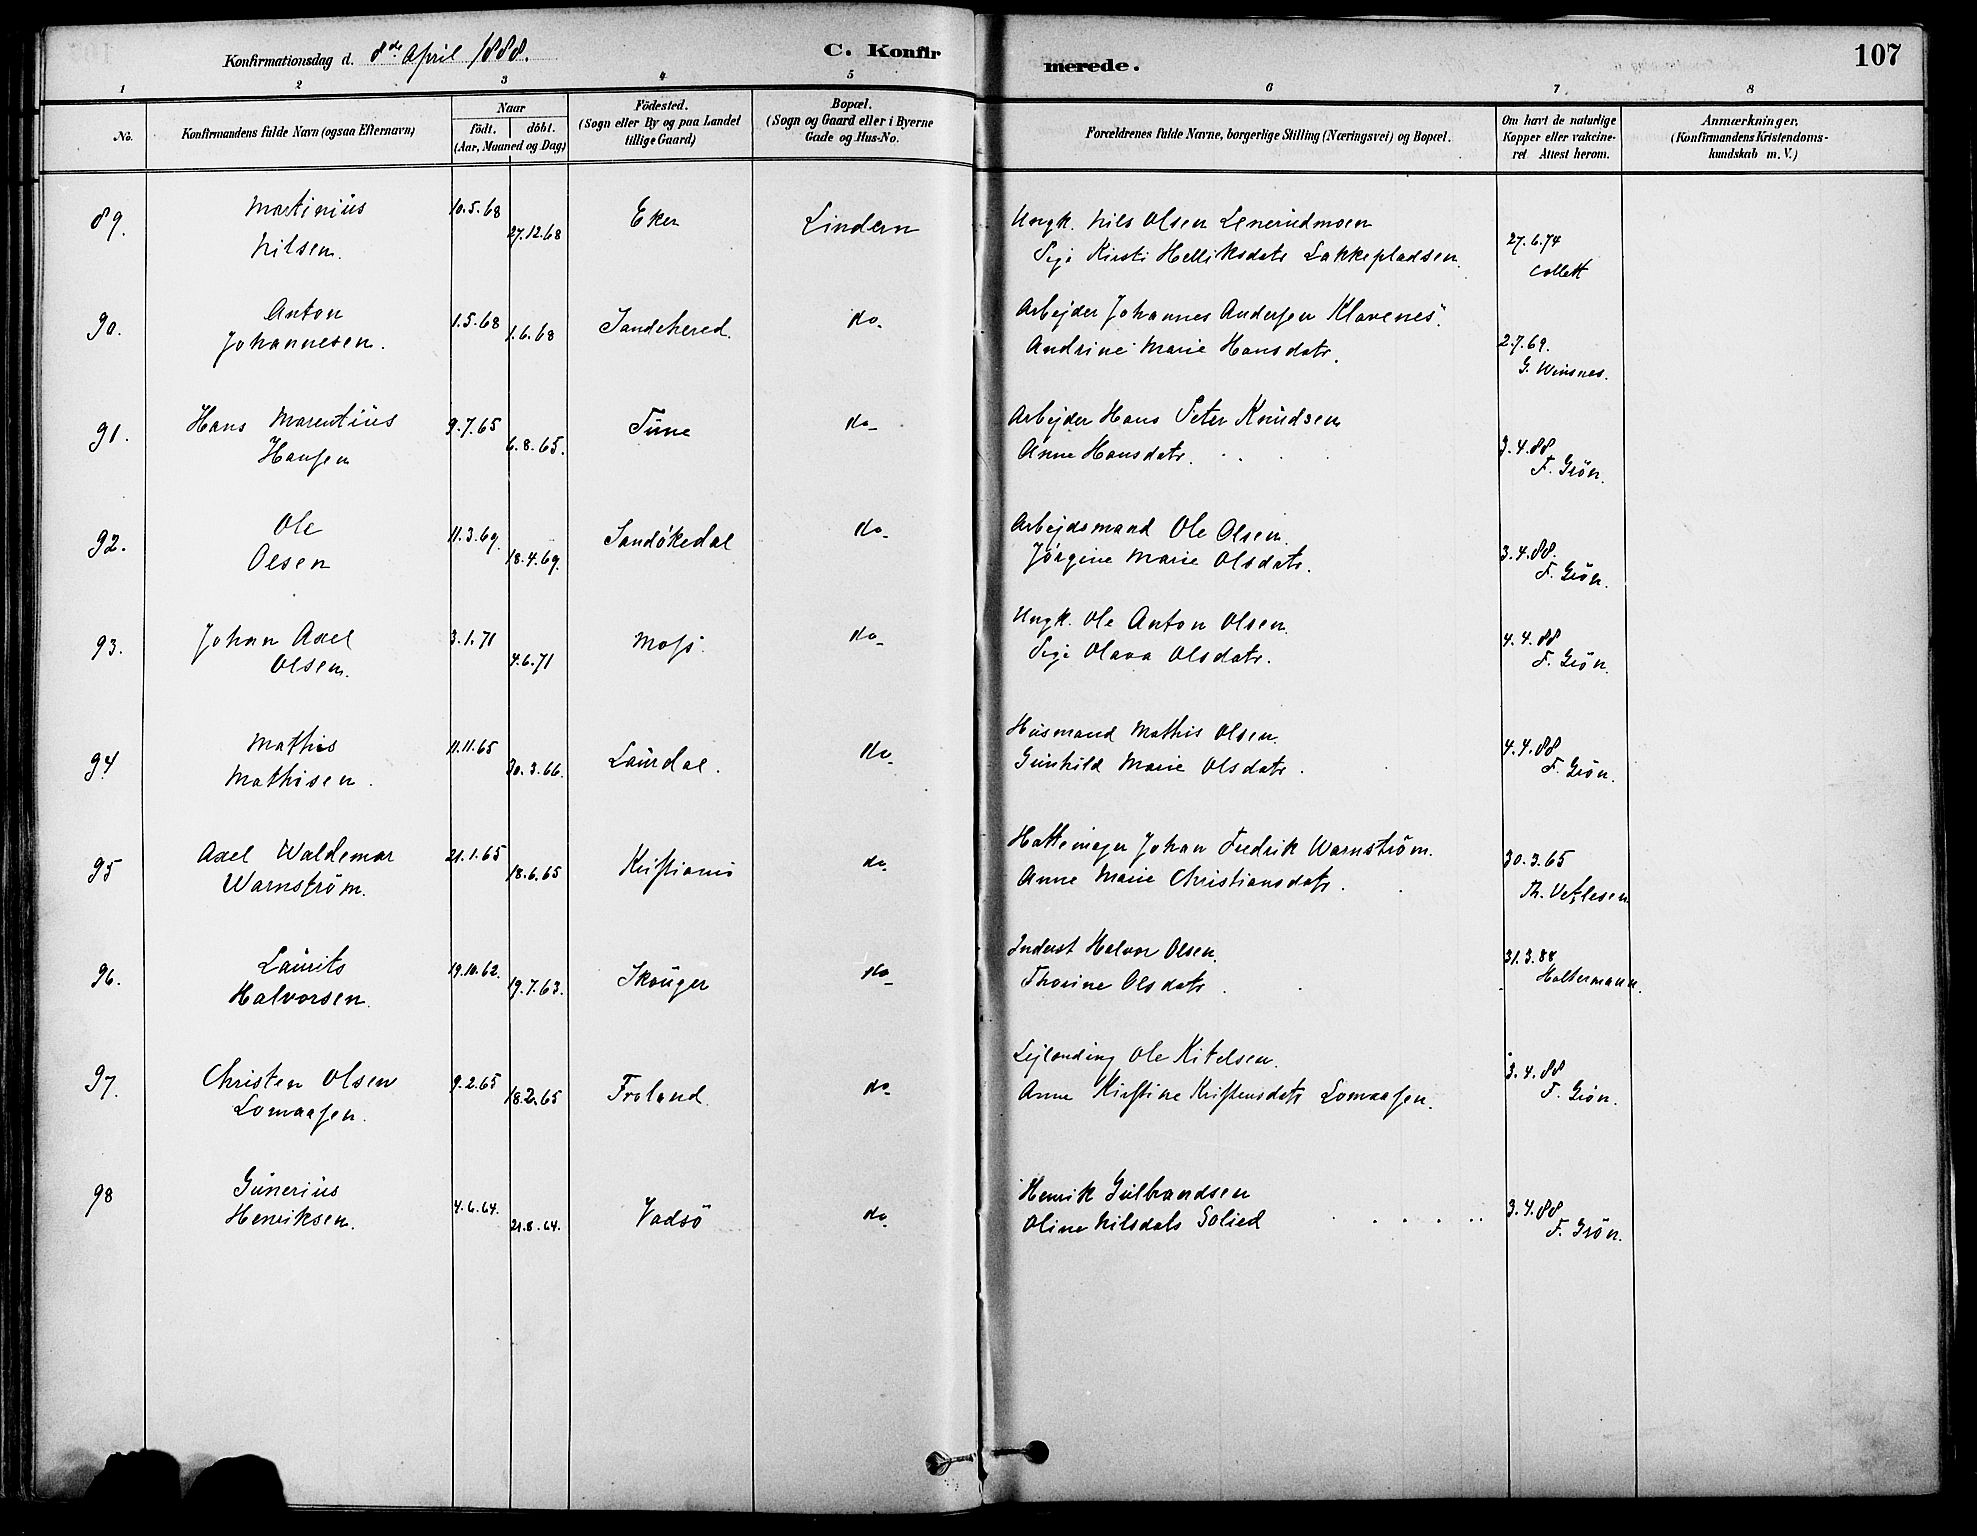 Konfirmationsdag d. 8de April 1888.
C. Konfirmerede.
107
1 2 3 4 5 6 7 8
No.
Konfirmandens fulde Navn (ogsaa Efternavn)
Naar
födt. döbt.
(Aar, Maaned og Dag)
Födested.
(Sogn eller By og paa Landet
tillige Gaard)
Bopæl.
(Sogn og Gaard eller i Byerne
Gade og Hus-No.
Forældrenes fulde Navne, borgerlige Stilling (Næringsvei) og Bopæl.
Om havt de naturlige
Kopper eller vakcine-
ret Attest herom.
Anmærkninger.
(Konfirmandens Kristendoms-
kundskab m. V.)
89. Martinius 10.5.68 Eker Lindern Ungk. Nils Olsen Lenerudmoen
Nilsen. 27.12.68 Pige Kirsti Helliksdatr Lakkepladsen. 27.6.74
Collett
90. Anton 1.5.68 Sandehered. do. Arbejder Johannes Andersen Klavenes.
Johannesen. 1.6.68 Andrine Marie Hansdatr. 2.7.69.
G. Winsnes.
91. Hans Marentius 9.7.65 Tune do. Arbejder Hans Peter Knudsen
Hansen 6.8.65. Anne Hansdatr. 3.4.88
F. Grön.
92. Ole 11.3.69. Sandökedal do. Arbejdsmand Ole Olsen.
Olsen 18.4.69. Jörgine Marie Olsdatr. 3.4.88.
F. Grön.
93. Johan Axel 3.1.71 Moss. do. Ungk. Ole Anton Olsen.
Olsen. 4.6.71 Pige Olava Olsdatr. 4.4.88
F. Grön.
94 Mathis 11.11.65 Laurdal. do. Husmand Mathis Olsen.
Mathisen. 30.3.66. Gunhild Marie Olsdatr. 4.4.88
F. Grön.
95 Axel Waldemar 21.1.65 Kristiania do. Hattemager Johan Fredrik Warnström.
Warnström. 18.6.65 Anne Marie Christiansdatr. 30.3.65
Th. Vetlesen
96. Laurits 19.10.62. Skouger do. Inderst Halvor Olsen.
Halvorsen. 19.7.63. Thorine Olsdatr. 31.3.88
Haltermann.
97. Christen Olsen 9.2.65 Froland. do. Lejlending Ole Kitelsen.
Lomaasen. 18.2.65 Anne Kirstine Kristensdatr Lomaasen. 3.4.88
F. Grön.
98 Gunerius 4.6.64. Vadsö do. Henrik Gulbrandsen
Henriksen. 21.8.64. Oline Nilsdatr Solied 3.4.88
F. Grön.